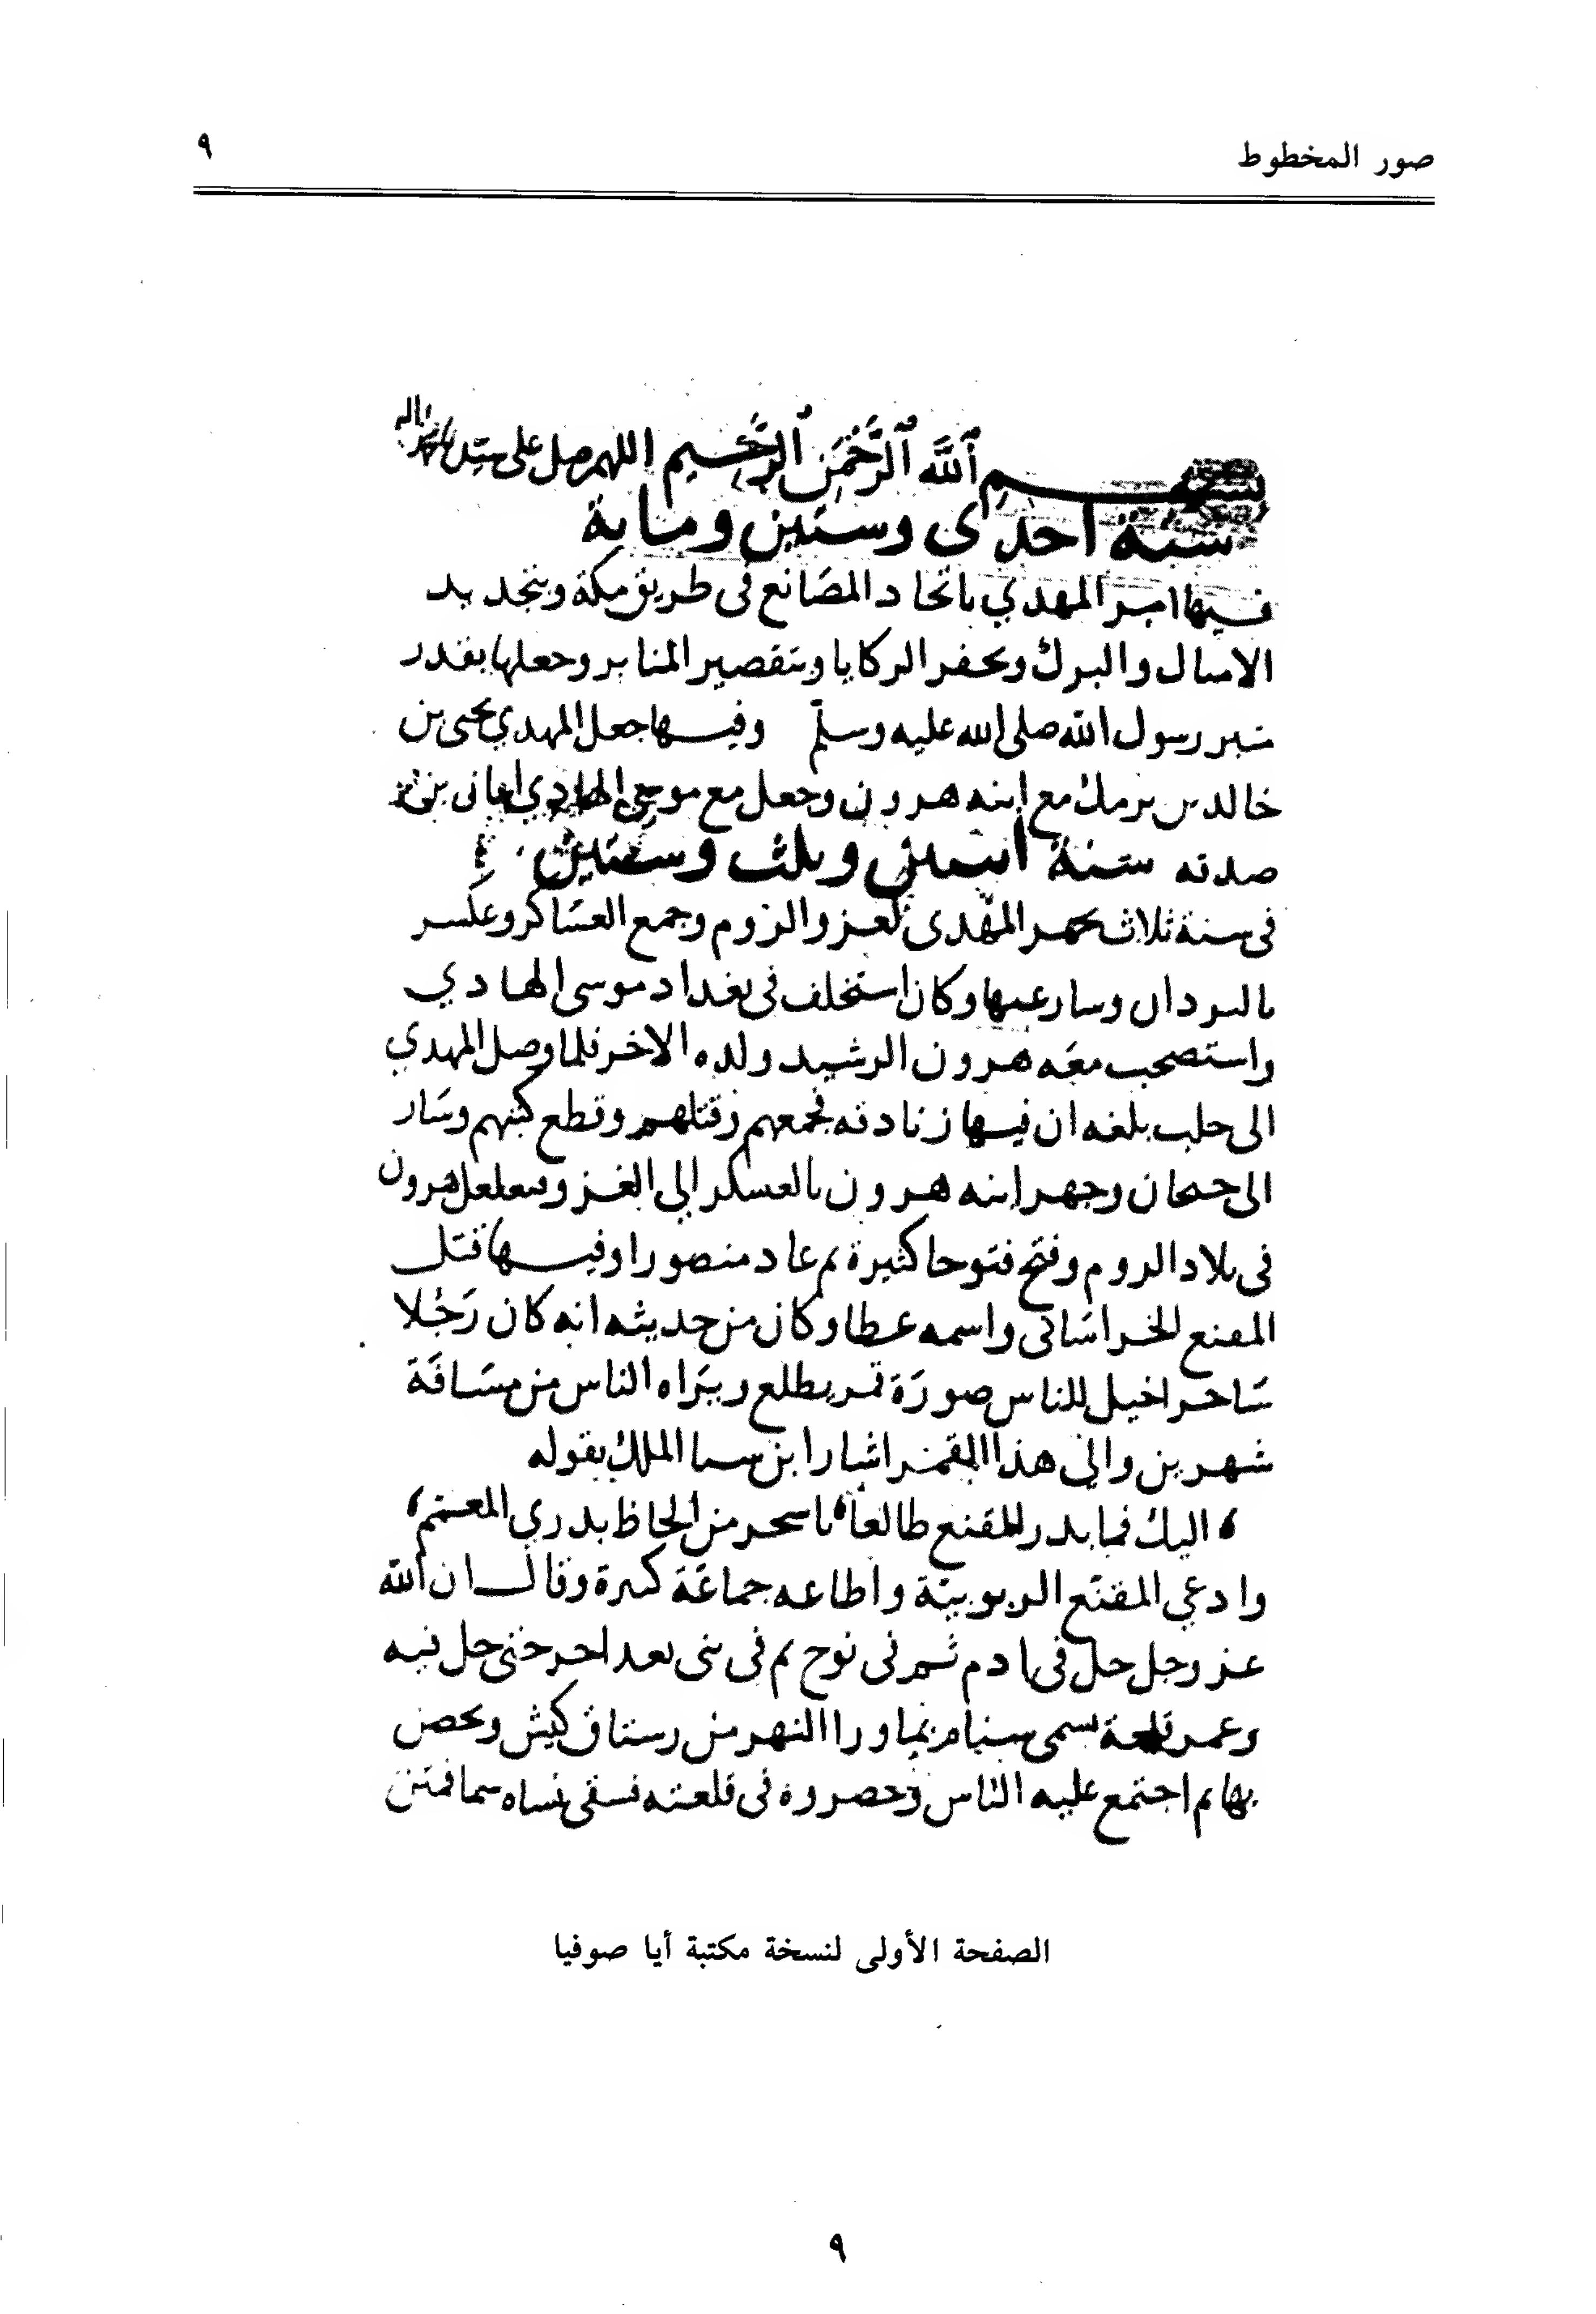 صور المخطوط
٩
بسم ٱللَّه ٱلرَّحْمَن ٱلرَّحيم اللهم صل على سيدنا محمد واله
سنة احدى وستين وماية
فيها امر المهدي باتخاد المصَانع فى طريق مكة وبتجديد
الاميال والبرك وبحفر الركايا وبتقصير المنابر وجعلها بقدر
منبر رسول الله صلى الله عليه وسلم وفيها جعل المهدي يحيى بن
خالد بن برمك مع ابنه هرون وجعل مع موسى الهادي ابان بن
صدقه سنة اثنين وثلث وستين
فى سنة ثلاث تجهز المهدى لغزو الروم وجمع العسَاكر وعسكر
بالبردان وسار عنها وكان استخلف فى بغداد موسى الهادي
واستصحب معَه هرون الرشيد ولده الاخر فلما وصل المهدي
الى حلب بلغه ان فيها زنادقه فجمعهم وقتلهم وقطع كتبهم وسَار
الى جيحان وجهز ابنه هرون بالعسكر الي الغزو هرون
فى بلاد الروم وفتح فتوحا كثيرة ثم عاد منصورا وفيها قتل
المقنع الخراسَانى واسمه عطا وكان من حديثه انه كان رَجُلا
سَاحرا خيل للناس صورَة قمر يطلع ويَرَاه الناس من مسَافَة
شهرين والى هذا القمر اشار ابن سنا الملك بقوله
اليك فما بدر المقنع طالعا باسحر من الحاظ بدري المعمم
وادعي المقنع الربوبيَّة واطاعه جماعَة كثيرة وقال ان الله
عز وجل حل فى ادم ثم فى نوح ثم فى نبى بعد اخر حتى حل فيه
وعمر قلعة تسمى سنام بما ورا النهر من رستاق كيش وتحصن
بها ثم اجتمع عليه الناس وحصروه فى قلعته فسقى نساه سما فمتن
الصفحة الأولى لنسخة مكتبة أيا صوفيا
٩